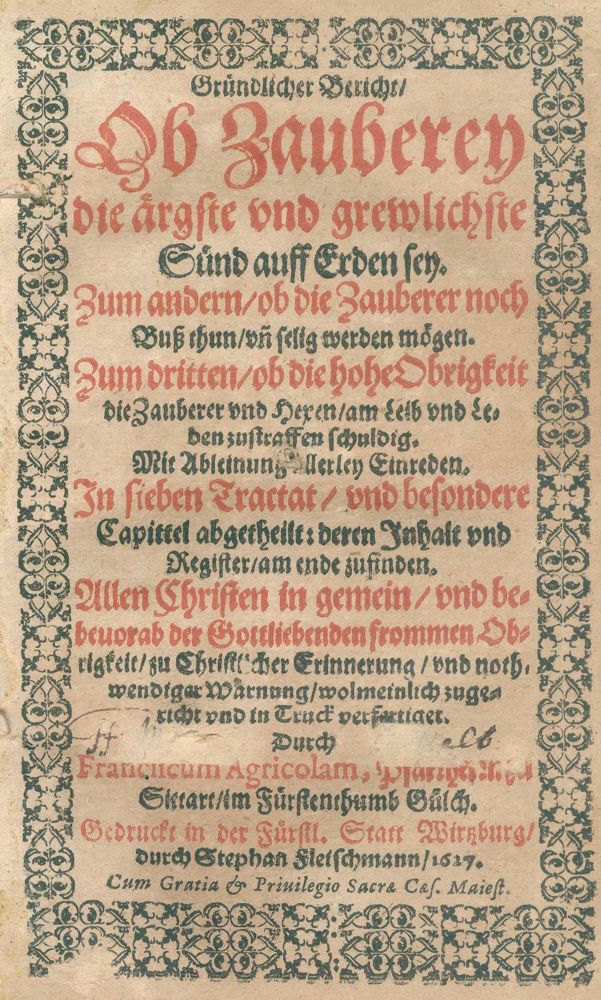 Gründlicher Bericht/
Ob Zauberey
die ärgste vnd grewlichste
Sünd auff Erden sey.
Zum andern/ob die Zauberer noch
Buß thun/vñ selig werden mögen.
Zum dritten/ob die hohe Obrigkeit
die Zauberer vnd Hexen/am Leib vnd Le-
ben zustraffen schuldig.
Mit Ableinung allerley Einreden.
In sieben Tractat/ vnd besondere
Capittel abgetheilt: deren Inhalt vnd
Register/am ende zufinden.
Allen Christen in gemein/ vnd be-
beuorab der Gottliebenden frommen Ob-
rigkeit/zu Christlicher Erinnerung/ vnd noth-
wendiger Warnung/wolmeinlich zuge-
richt vnd in Truck verfertiget.
Durch
Franciscum Agricolam,
Sittart/im Fürstenthumb Gülch.
Gedruckt in der Fürstl. Statt Wirtzburg/
durch Stephan Fleischmann/1627.
Cum Gratia & Priuilegio Sacræ Cæs. Maiest.